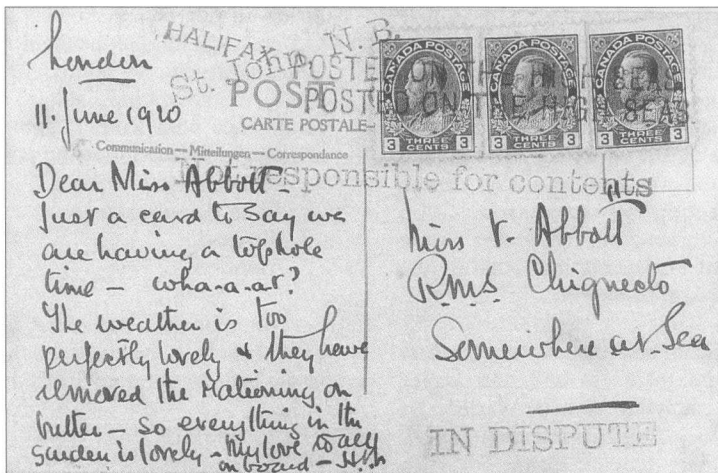 London
11. June 1920
HALIFAX
St. John, N.B.
POSTED ON THE HIGH SEAS
POSTED ON THE HIGH SEAS
POST
CARTE POSTALE
Communication — Mitteilungen — Correspondance
Not responsible for contents
CANADA POSTAGE
3 THREE CENTS 3
CANADA POSTAGE
3 THREE CENTS 3
CANADA POSTAGE
3 THREE CENTS 3
Dear Miss Abbott —
Just a card to say we
are having a tophole
time — wha-a-at?
The weather is too
perfectly lovely & they have
removed the rationing on
butter — so everything in the
garden is lovely — My love to all
on board —
Miss V. Abbott
R.M.S. Chignecto
Somewhere at Sea
IN DISPUTE